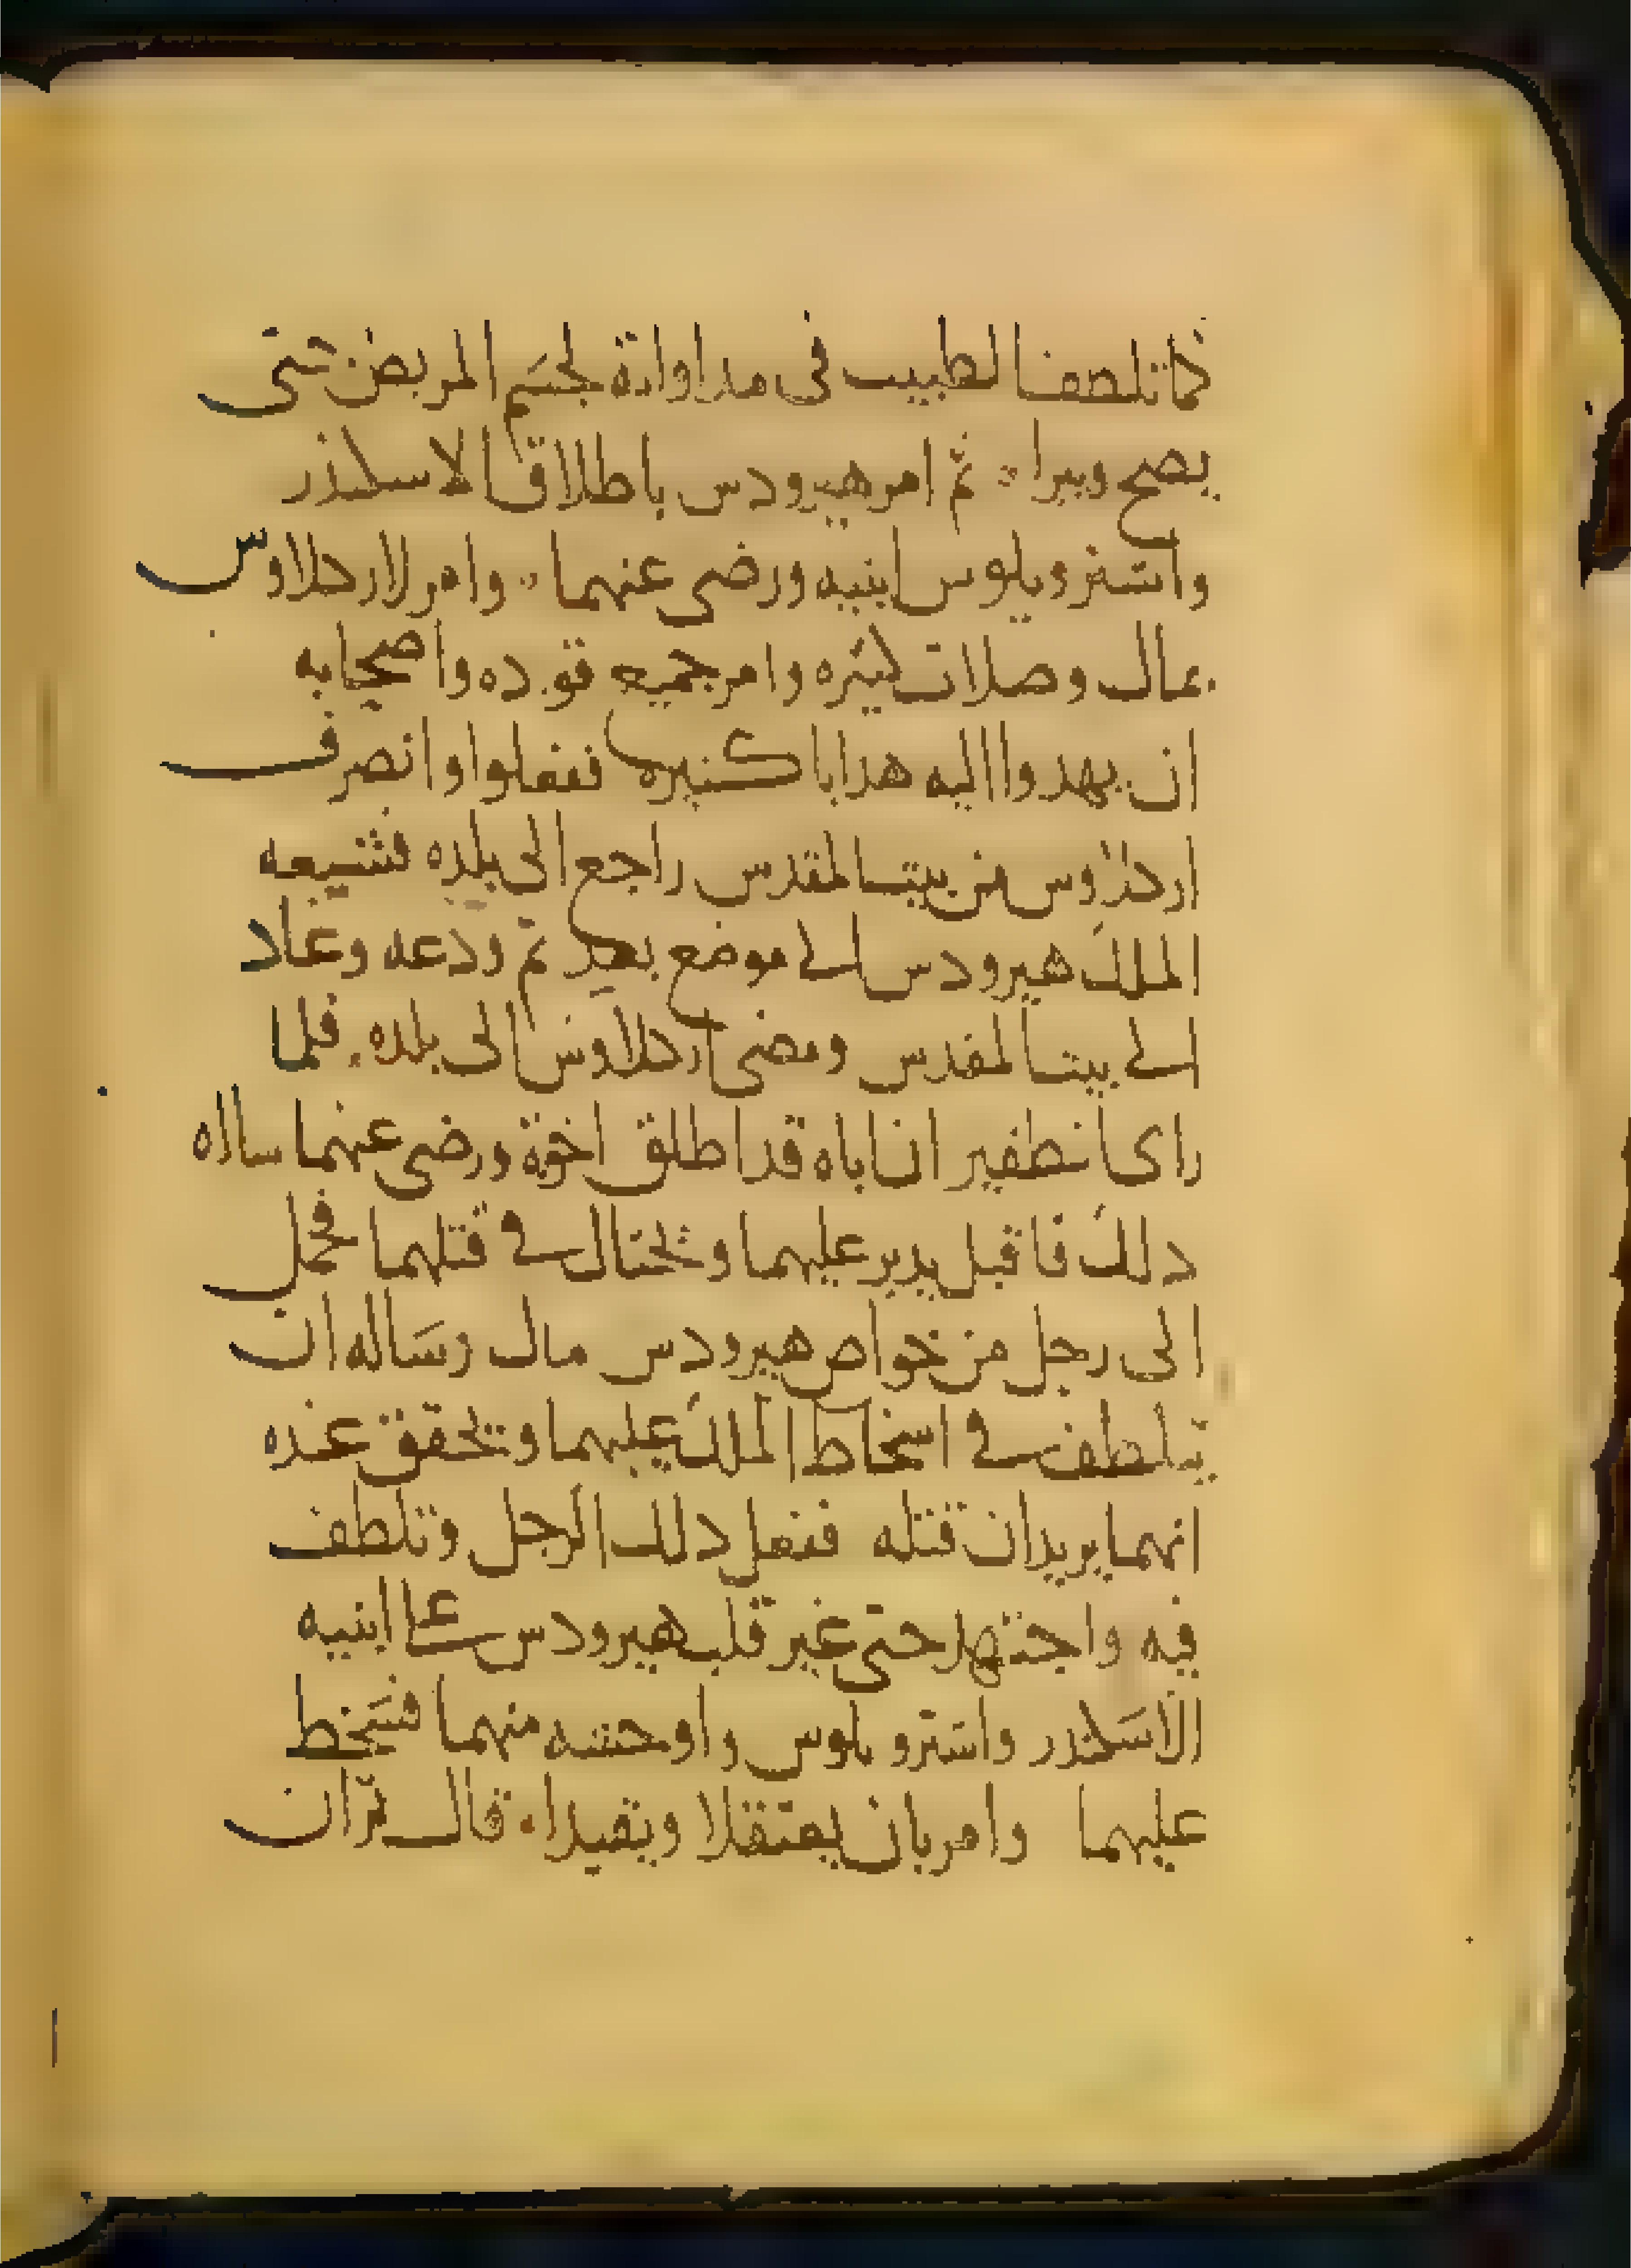 كما تلطف الطبيب في مداواته لجسم المريض حتى
يصح ويبرا ۰ ثم امر هيرودس باطلاق الاسكندر
واسترو بلوس ابنيه ورضى عنهما ۰ وامر لارحلاوس
بمال وصلات كثيره وامر جميع قوده واصحابه
ان يهدوا اليه هدايا كثيره ففعلوا وانصرف
ارحلاوس من بيت المقدس راجع الى بلده فشيعه
الملك هيرودس الى موضع بعيد ثم ودعه وعاد
الى بيت المقدس ومضى ارحلاوس الى بلده ۰ فلما
راى انطفير ان اباه قد اطلق اخوته ورضى عنهما ساه
ذلك فاقبل يدبر عليهما ويحتال في قتلهما فحمل
الى رجل من خواص هيرودس مال وساله ان
يتلطف في اسخاط الملك عليهما ويحقق عنده
انهما يريدان قتله ففعل ذلك الرجل وتلطف
فيه واجتهد حتى غير قلب هيرودس على ابنيه
الاسكندر واسترو بلوس واوحشه منهما فسخط
عليهما وامر بان يعتقلا ويقيدا ۰ قال ثم ان